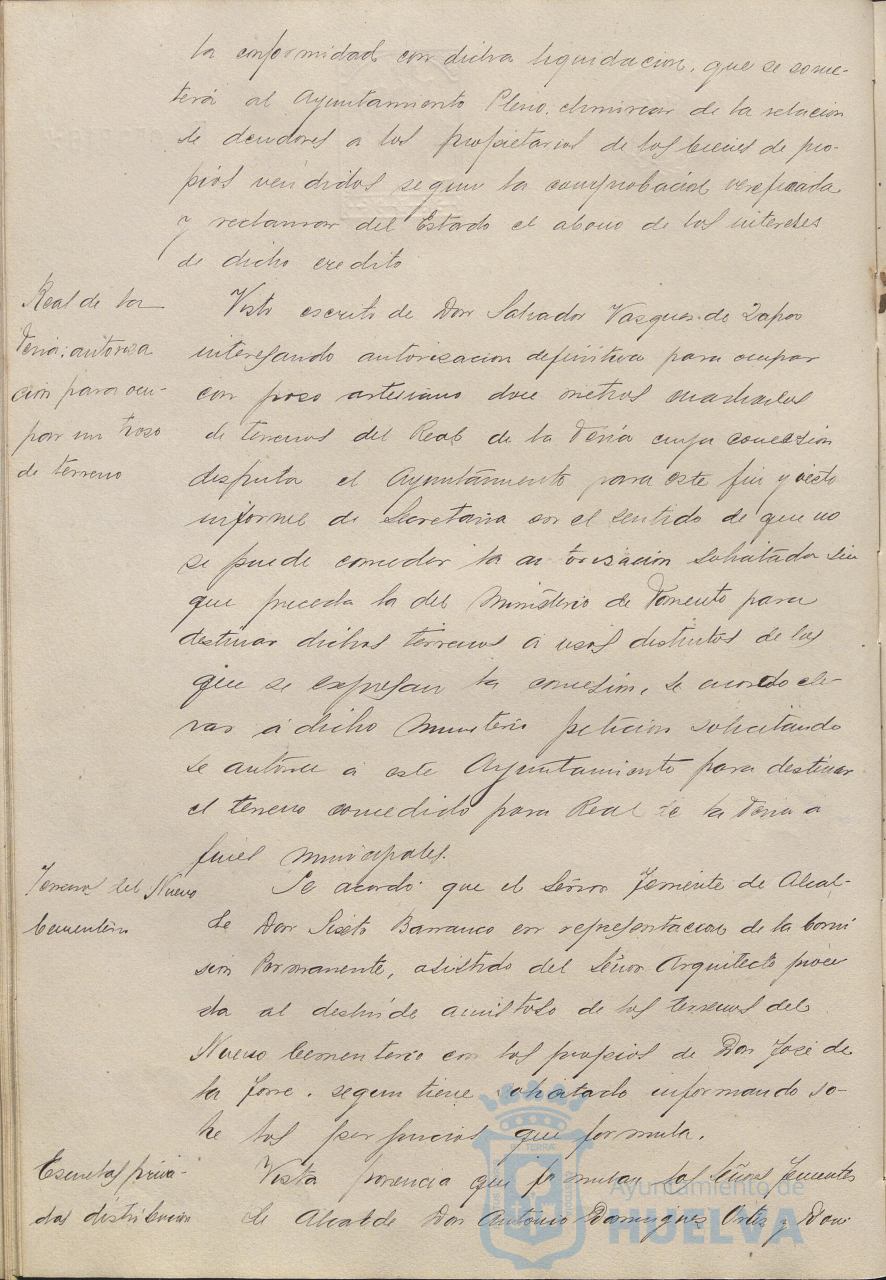 la conformidad con dicha liquidacion, que se some-
terá al Ayuntamiento Pleno, eliminar de la relacion
de deudores a los propietarios de los bienes de pro-
pios vendidos segun la comprobacion verificada
y reclamar del Estado el abono de los intereses
de dicho credito
Real de la
Feria: autoriza
ción para ocu-
par un trozo
de terreno
Visto escrito de Don Salvador Vazquez de Zafra
interesando autorizacion definitiva para ocupar
con pozo artesiano doce metros cuadrados
de terrenos del Real de la Feria cuya concesión
disfruta el Ayuntamiento para este fin y visto
informe de Secretaria en el sentido de que no
se puede conceder la autorización solicitada sin
que preceda la del Ministerio de Fomento para
destinar dichos terrenos a usos distintos de los
que se expresan la concesión, se acordo ele-
var á dicho Ministerio peticion solicitando
se autorice á este Ayuntamiento para destinar
el terreno concedido para Real de la Feria a
fines municipales.
Terrenos del Nuevo
Cementerio
Se acordó que el Señor Teniente de Alcal-
de Don Sixto Barranco en representacion de la Comi
sión Permanente, asistido del Señor Arquitecto proce
da al deslinde amistoso de los terrenos del
Nuevo Cementerio con los propios de Don José de
la Torre, segun tiene solicitado informando so-
bre los perjuicios que formula.
Escuelas priva-
das distribucion
Vista ponencia que formulan los Señores Tenientes
de Alcalde Don Antonio Dominguez Ortiz y Don
Ayuntamiento de
HUELVA